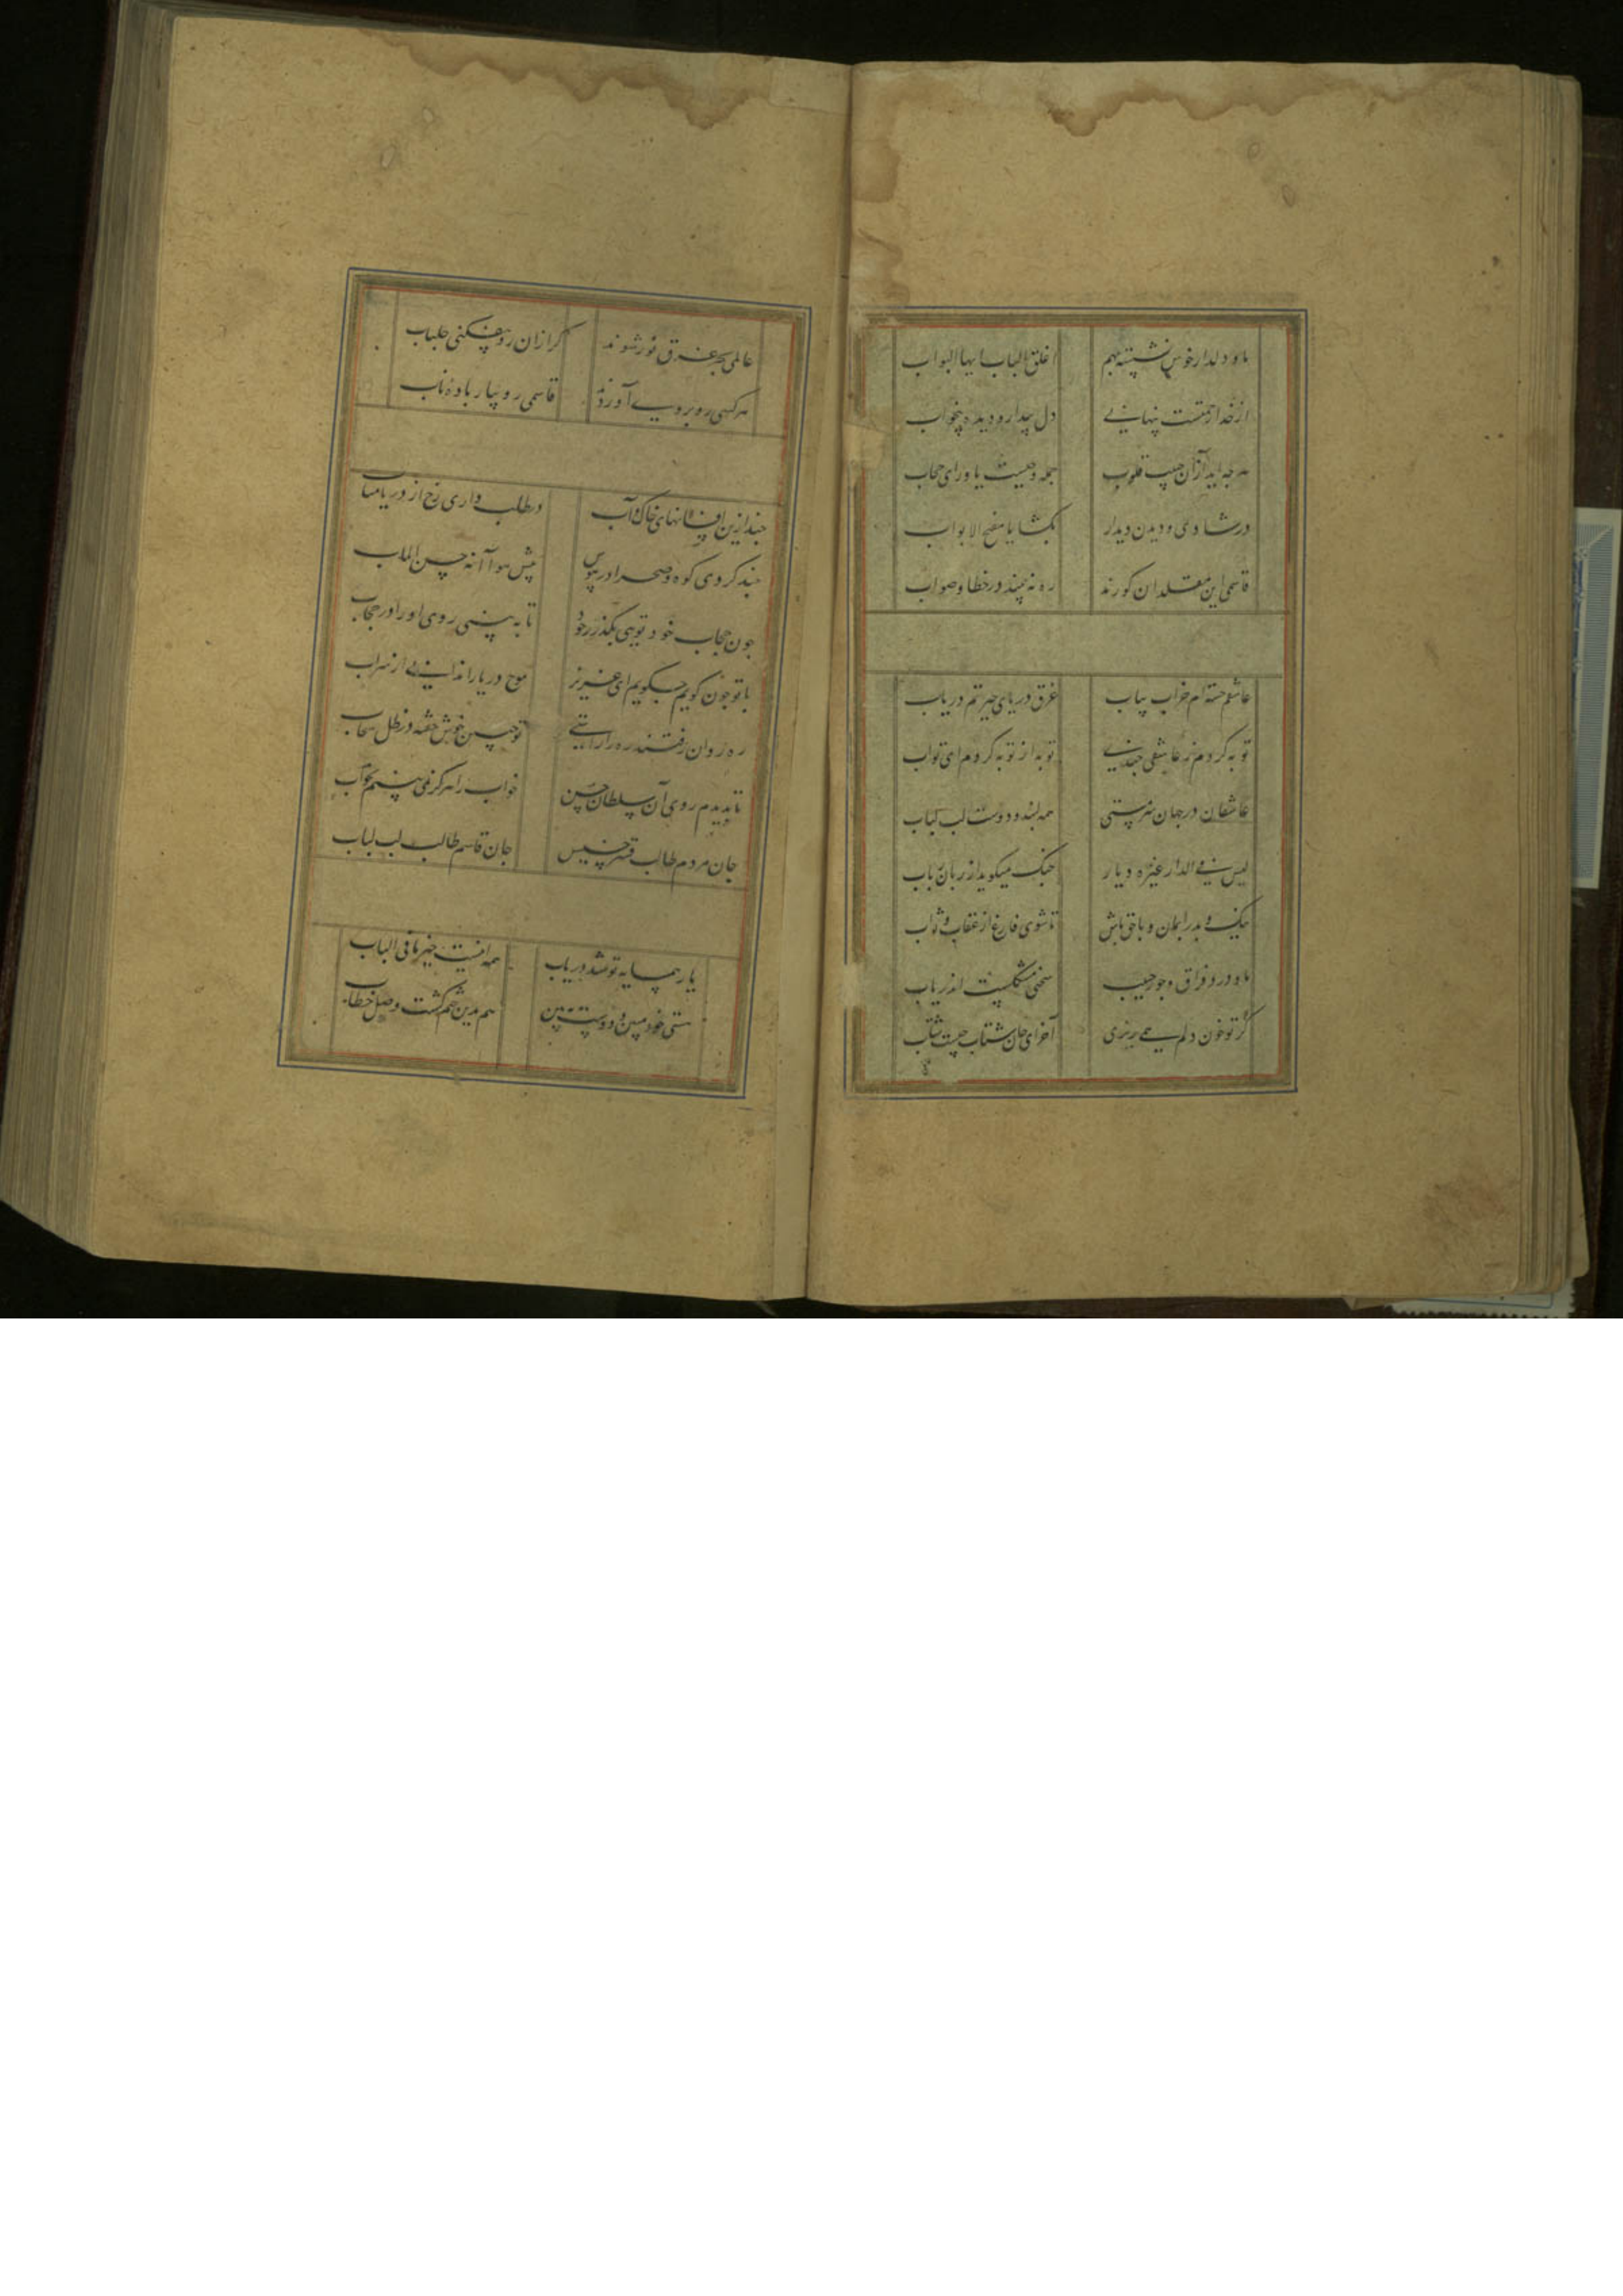 ما و دلدار خوش نشسته بهم اغلق الباب ایها البواب
از خدا رحمتست پنهانی دل بیدار و دیده بیخواب
هر چه اید از آن حبیب قلوب جمله وحیست یا ورای حجاب
در شادی و دیدن دیدار بکشا یا مفتح الابواب
قاسمی این مقلدان کورند ره نه بینند در خطا و صواب
عاشقم خسته ام خراب بیاب غرق دریای حیرتم دریاب
توبه کردم ز عاشقی چندی توبه از توبه کردم ای تواب
عاشقان در جهان سرمستی همه لبند و دوست لب لباب
لیس فی الدار غیره دیار چنک میکوید از زبان رباب
نیک و بد را بمان و باقی باش تا شوی فارغ از عقاب و ثواب
ما و درد فراق و جور حبیب سخنی مشکلست اندر یاب
کر تو خون دلم همی ریزی آخر ای جان شتاب چیست شتاب
عالمی جمله غرق نور شوند کر از آن رو بیفکنی جلباب
هر کسی رو بروی آوردند قاسمی رو بیار باده ناب
چند ازین افسانهای خاک و آب در طلب داری رخ از دریا متاب
چند کردی کوه و صحرا در هوس پیش هوا آنه حسن الماب
چون حجاب خود تویی بکذر ز خود تا به بینی روی او را در حجاب
با تو چون کویم چکویم ای عزیز موج دریا را ندانی از سراب
ره روان رفتند ره را راستی تو چنین خوش خفته در ظل سحاب
تا بدیدم روی آن سلطان حسن خواب را هرکز نمی بینم بخواب
جان مردم طالب قشر خسیس جان قاسم طالب لب لباب
یار همسایه تو شد دریاب همه اینست خیر ما فی الباب
هستی خود مبین و دوست ببین هم بدین ختم کشت وصل خطاب